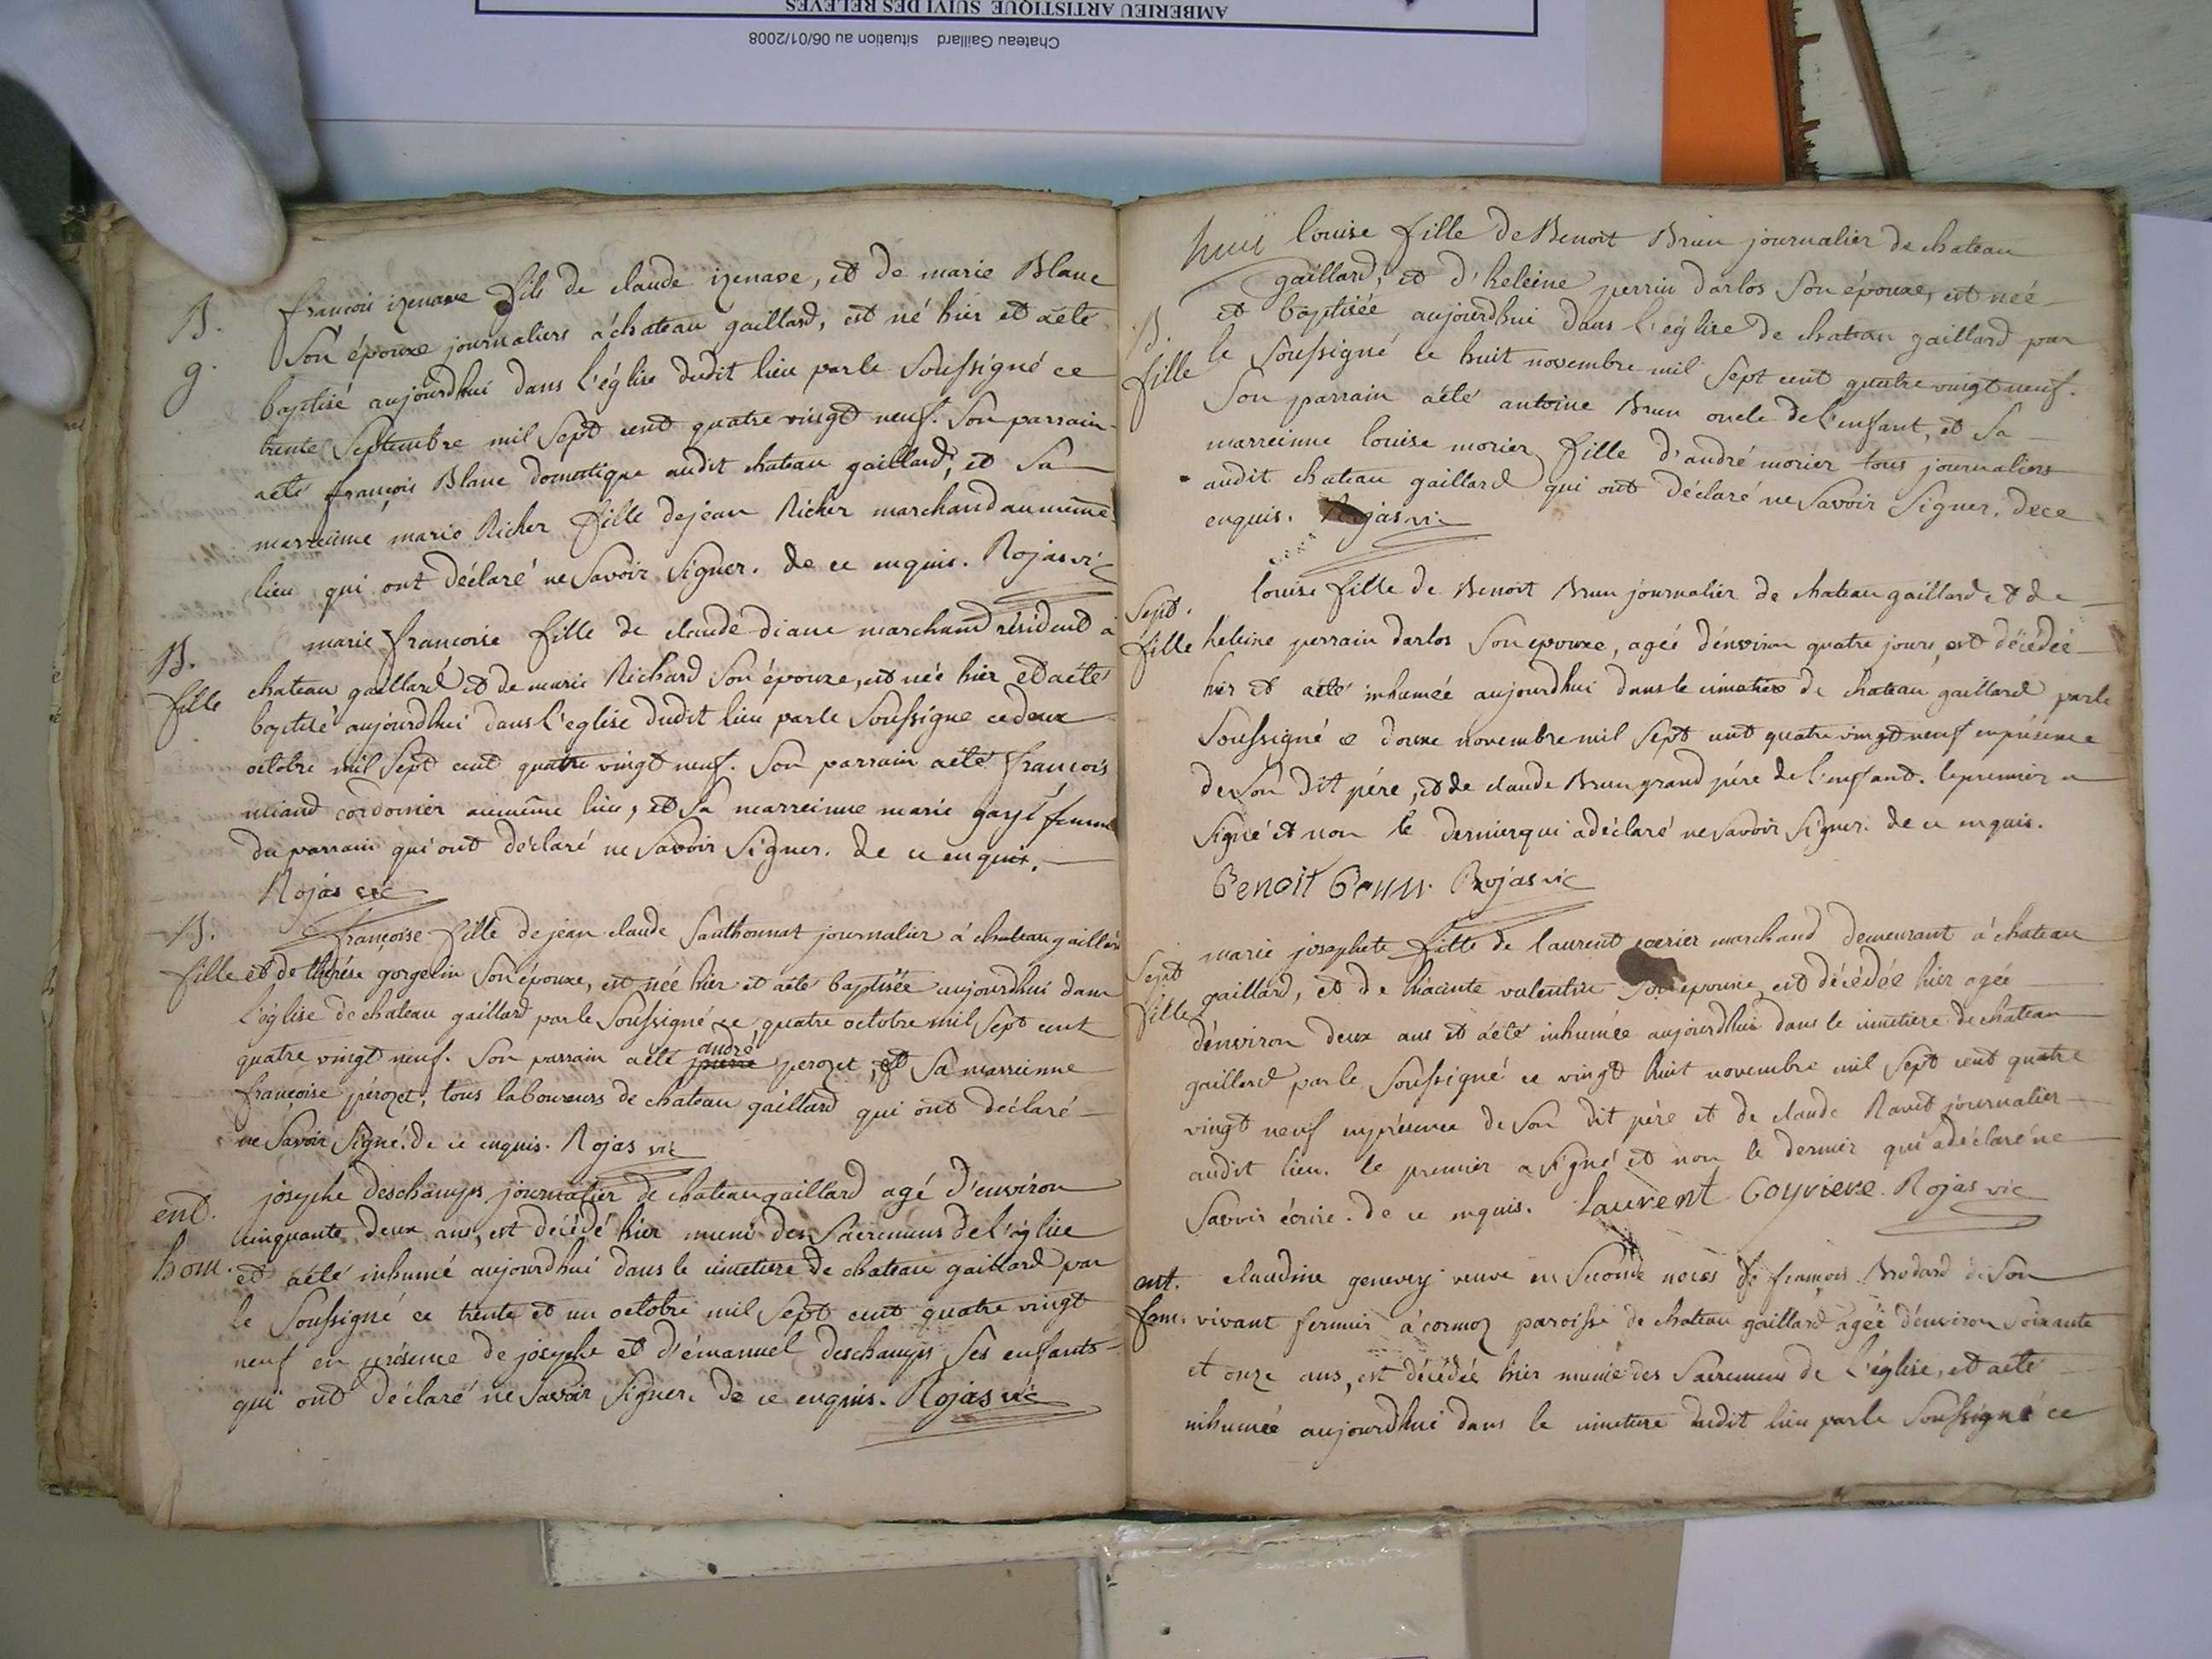 AMBERIEU ARTISTIQUE SUIVI DES RELEVES
Chateau Gaillard situation au 06/01/2008
B.
g.
françois izenave fils de claude izenave, et de marie Blanc
Son épouxe journaliers à chateau gaillard, est né hier et aété
baptisé aujourdhui dans l'église dudit lieu parle Soussigné ce
trente Septembre mil Sept cent quatre vingt neuf. Son parrain
aété françois Blanc domestique audit chateau gaillard, et Sa
marreinne marie Richer fille dejean Richer marchand aumême
lieu qui ont déclaré ne Savoir Signer. de ce enquis. Rojas vic
B.
fille
marie françoise fille de claude diane marchand résident à
chateau gaillard et de marie Richard Son épouxe, est née hier et aété
baptisé aujourdhui dans l'eglise dudit lieu parle Soussigne ce deux
octobre mil Sept cent quatre vingt neuf. Son parrain aété françois
cordonier aumême lieu, et Sa marreinne marie femme
du parrain qui ont déclaré ne Savoir Signer. de ce enquis.
Rojas vic
B.
fille
françoise fille dejean claude Sauthonnat journalier à chateau gaillard
et de thérése gorgelin Son épouxe, est née hier et aété baptisée aujourdhui dans
l'église de chateau gaillard parle Soussigné ce quatre octobre mil Sept cent
quatre vingt neuf. Son parrain aété pierre andré perozet, et Sa marreinne
françoise pérozet, tous laboureurs de chateau gaillard qui ont déclaré
ne Savoir Signé. de ce enquis. Rojas vic
ent.
hom.
josephe deschamps journalier de chateau gaillard agé d'environ
Cinquante deux ans, est décédé hier muni des Sacremens de l'église
et aété inhumé aujourdhui dans le cimetiere de chateau gaillard par
le Soussigné ce trente et un octobre mil Sept cent quatre vingt
neuf en présence de josephe et d'émanuel deschamps Ses enfants
qui ont déclaré ne Savoir Signer. de ce enquis. Rojas vic
B.
fille
louise fille de Benoit Brun journalier de chateau
gaillard, et d'heleine perrin darlos Son épouxe, est née
et baptisée aujourdhui dans l'église de chateau gaillard par
le Soussigné ce huit novembre mil Sept cent quatre vingt neuf.
Son parrain aété antoine Brun oncle de l'enfant, et Sa
marreinne louise morier fille d'andré morier tous journaliers
audit chateau gaillard qui ont déclaré ne Savoir Signer. de ce
enquis. Rojas vic
Sept.
fille
louise fille de Benoit Brun journalier de chateau gaillard et de
heleine perrain darlos Son epouxe, agée d'environ quatre jours, est décédée
hier et aété inhumée aujourdhui dans le cimetiere de chateau gaillard parle
Soussigné ce douxe novembre mil Sept cent quatre vingt neuf en présence
de Son dit pére, et de claude Brun grand pére de l'enfant. le premier a
Signé et non le dernier qui a déclaré ne Savoir Signer. de ce enquis.
Benoit Brun. Rojas vic
Sept
fille
marie josephete fille de laurent marchand demeurant à chateau
gaillard, et de hiacinte valentin Son épouxe, est décédée hier agée
d'environ deux ans et aété inhumée aujourdhui dans le cimetiere de chateau
gaillard par le Soussigné ce vingt huit novembre mil Sept cent quatre
vingt neuf en présence de Son dit pére et de claude Ravet journalier
audit lieu. le premier a Signé et non le dernier qui a déclaré ne
Savoir écrire. de ce enquis. Laurent Goyriere. Rojas vic
ent.
fem.
claudine genevey veuve en Seconde noces de françois Brodard de Son
vivant fermier à cormoz paroisse de chateau gaillard agée d'environ Soixante
et onze ans, est décédée hier munie des Sacremens de l'église, et aété
inhumée aujourdhui dans le cimetiere dudit lieu parle Soussigné ce